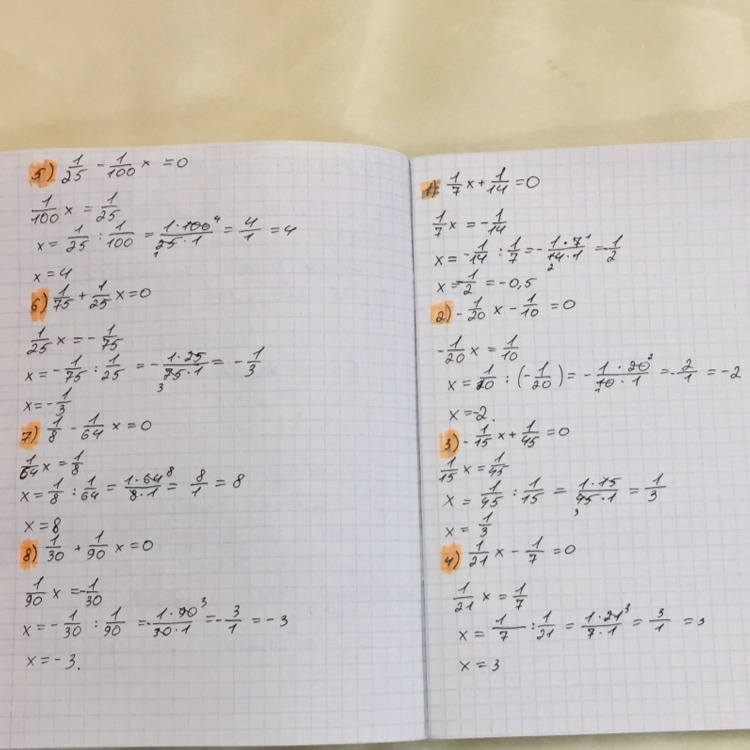 5) 1/25 - 1/100 x = 0
1/100 x = 1/25
x = 1/25 : 1/100 = 1·100⁴/25·1 ₁ = 4/1 = 4
x = 4
6) 1/75 + 1/25 x = 0
1/25 x = - 1/75
x = - 1/75 : 1/25 = - 1·25/75·1 ₃ = - 1/3
x = - 1/3
7) 1/8 - 1/64 x = 0
1/64 x = 1/8
x = 1/8 : 1/64 = 1·64⁸/8·1 = 8/1 = 8
x = 8
8) 1/30 + 1/90 x = 0
1/90 x = - 1/30
x = - 1/30 : 1/90 = - 1·90³/30·1 = - 3/1 = - 3
x = - 3.
1) 1/7 x + 1/14 = 0
1/7 x = - 1/14
x = - 1/14 : 1/7 = - 1·7¹/14·1 ₂ = - 1/2
x = - 1/2 = - 0,5
2) - 1/20 x - 1/10 = 0
- 1/20 x = 1/10
x = 1/10 : (- 1/20) = - 1·20²/10·1 ₁ = - 2/1 = - 2
x = - 2.
3) - 1/15 x + 1/45 = 0
1/15 x = 1/45
x = 1/45 : 1/15 = 1·15/45·1 ₃ = 1/3
x = 1/3
4) 1/21 x - 1/7 = 0
1/21 x = 1/7
x = 1/7 : 1/21 = 1·21³/7·1 = 3/1 = 3
x = 3